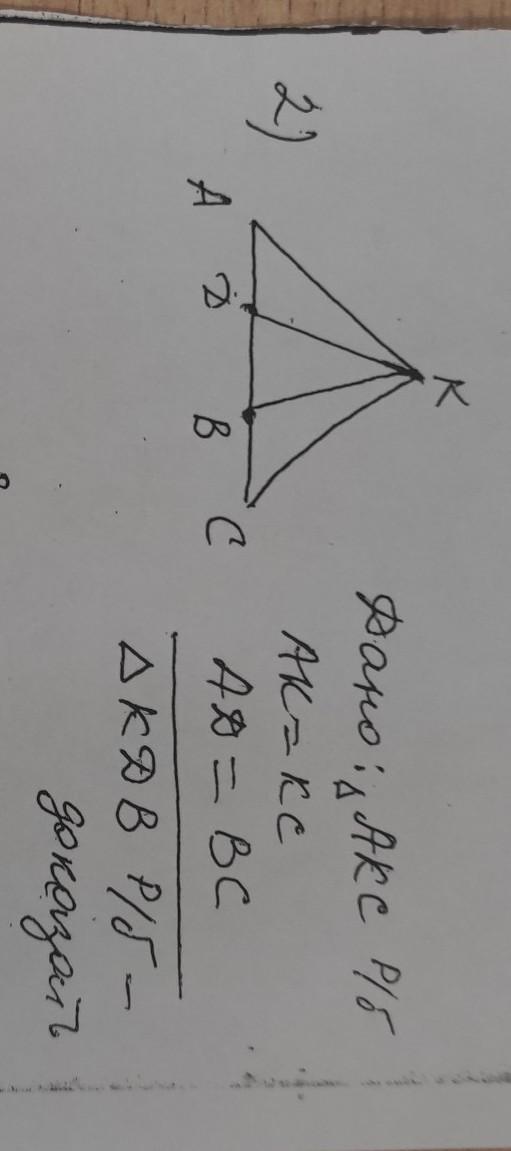 2)
K
A
D
B
C
Дано: △ AKC р/б
AK = KC
AD = BC
△ KDB р/б -
доказать